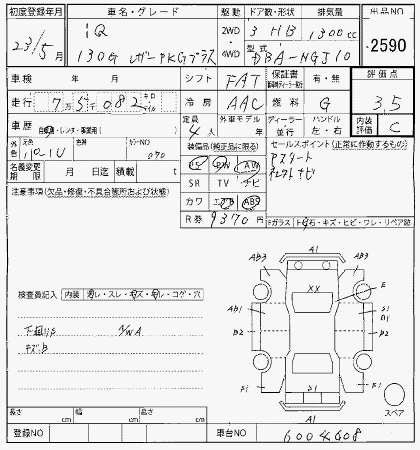 初度登録年月 車名・グレード 駆動 ドア数・形状 排気量 出品NO
23/5月 iQ 2WD 3 HB 1300cc 2590
130G レザーPKGプラス 4WD 型式 DBA-NGJ10
車検 年 月 シフト FAT 保証書 有・無 評価点
走行 7万5千082 キロ マイル 冷房 AAC 燃料 G 3.5
車歴 自家・レンタ・事業用( ) 定員 4人 外車モデル 年 ディーラー 並行 ハンドル 左・右 内装評価 C
外色 元色 カラーNO 070 装備品(純正品に限る) セールスポイント(正常に作動するもの)
名義変更期限 月 日迄 積載 t PS PW AW アスリート
注意事項(欠品・修復・不具合箇所および状態) SR TV ナビ
カワ エアB ABS
R券 9370円 Fガラス トビ石・キズ・ヒビ・ワレ・リペア跡
A1
AB3 AB3
XX E
検査員記入 内装 汚レ・スレ・キズ・破レ・コゲ・穴
AB1 S1 B1
B2 B2
下廻りS N/WA
キズB
F1 B1 F1
A1 スペア
長さ cm 幅 cm 高さ cm
登録NO 車台NO 6004608